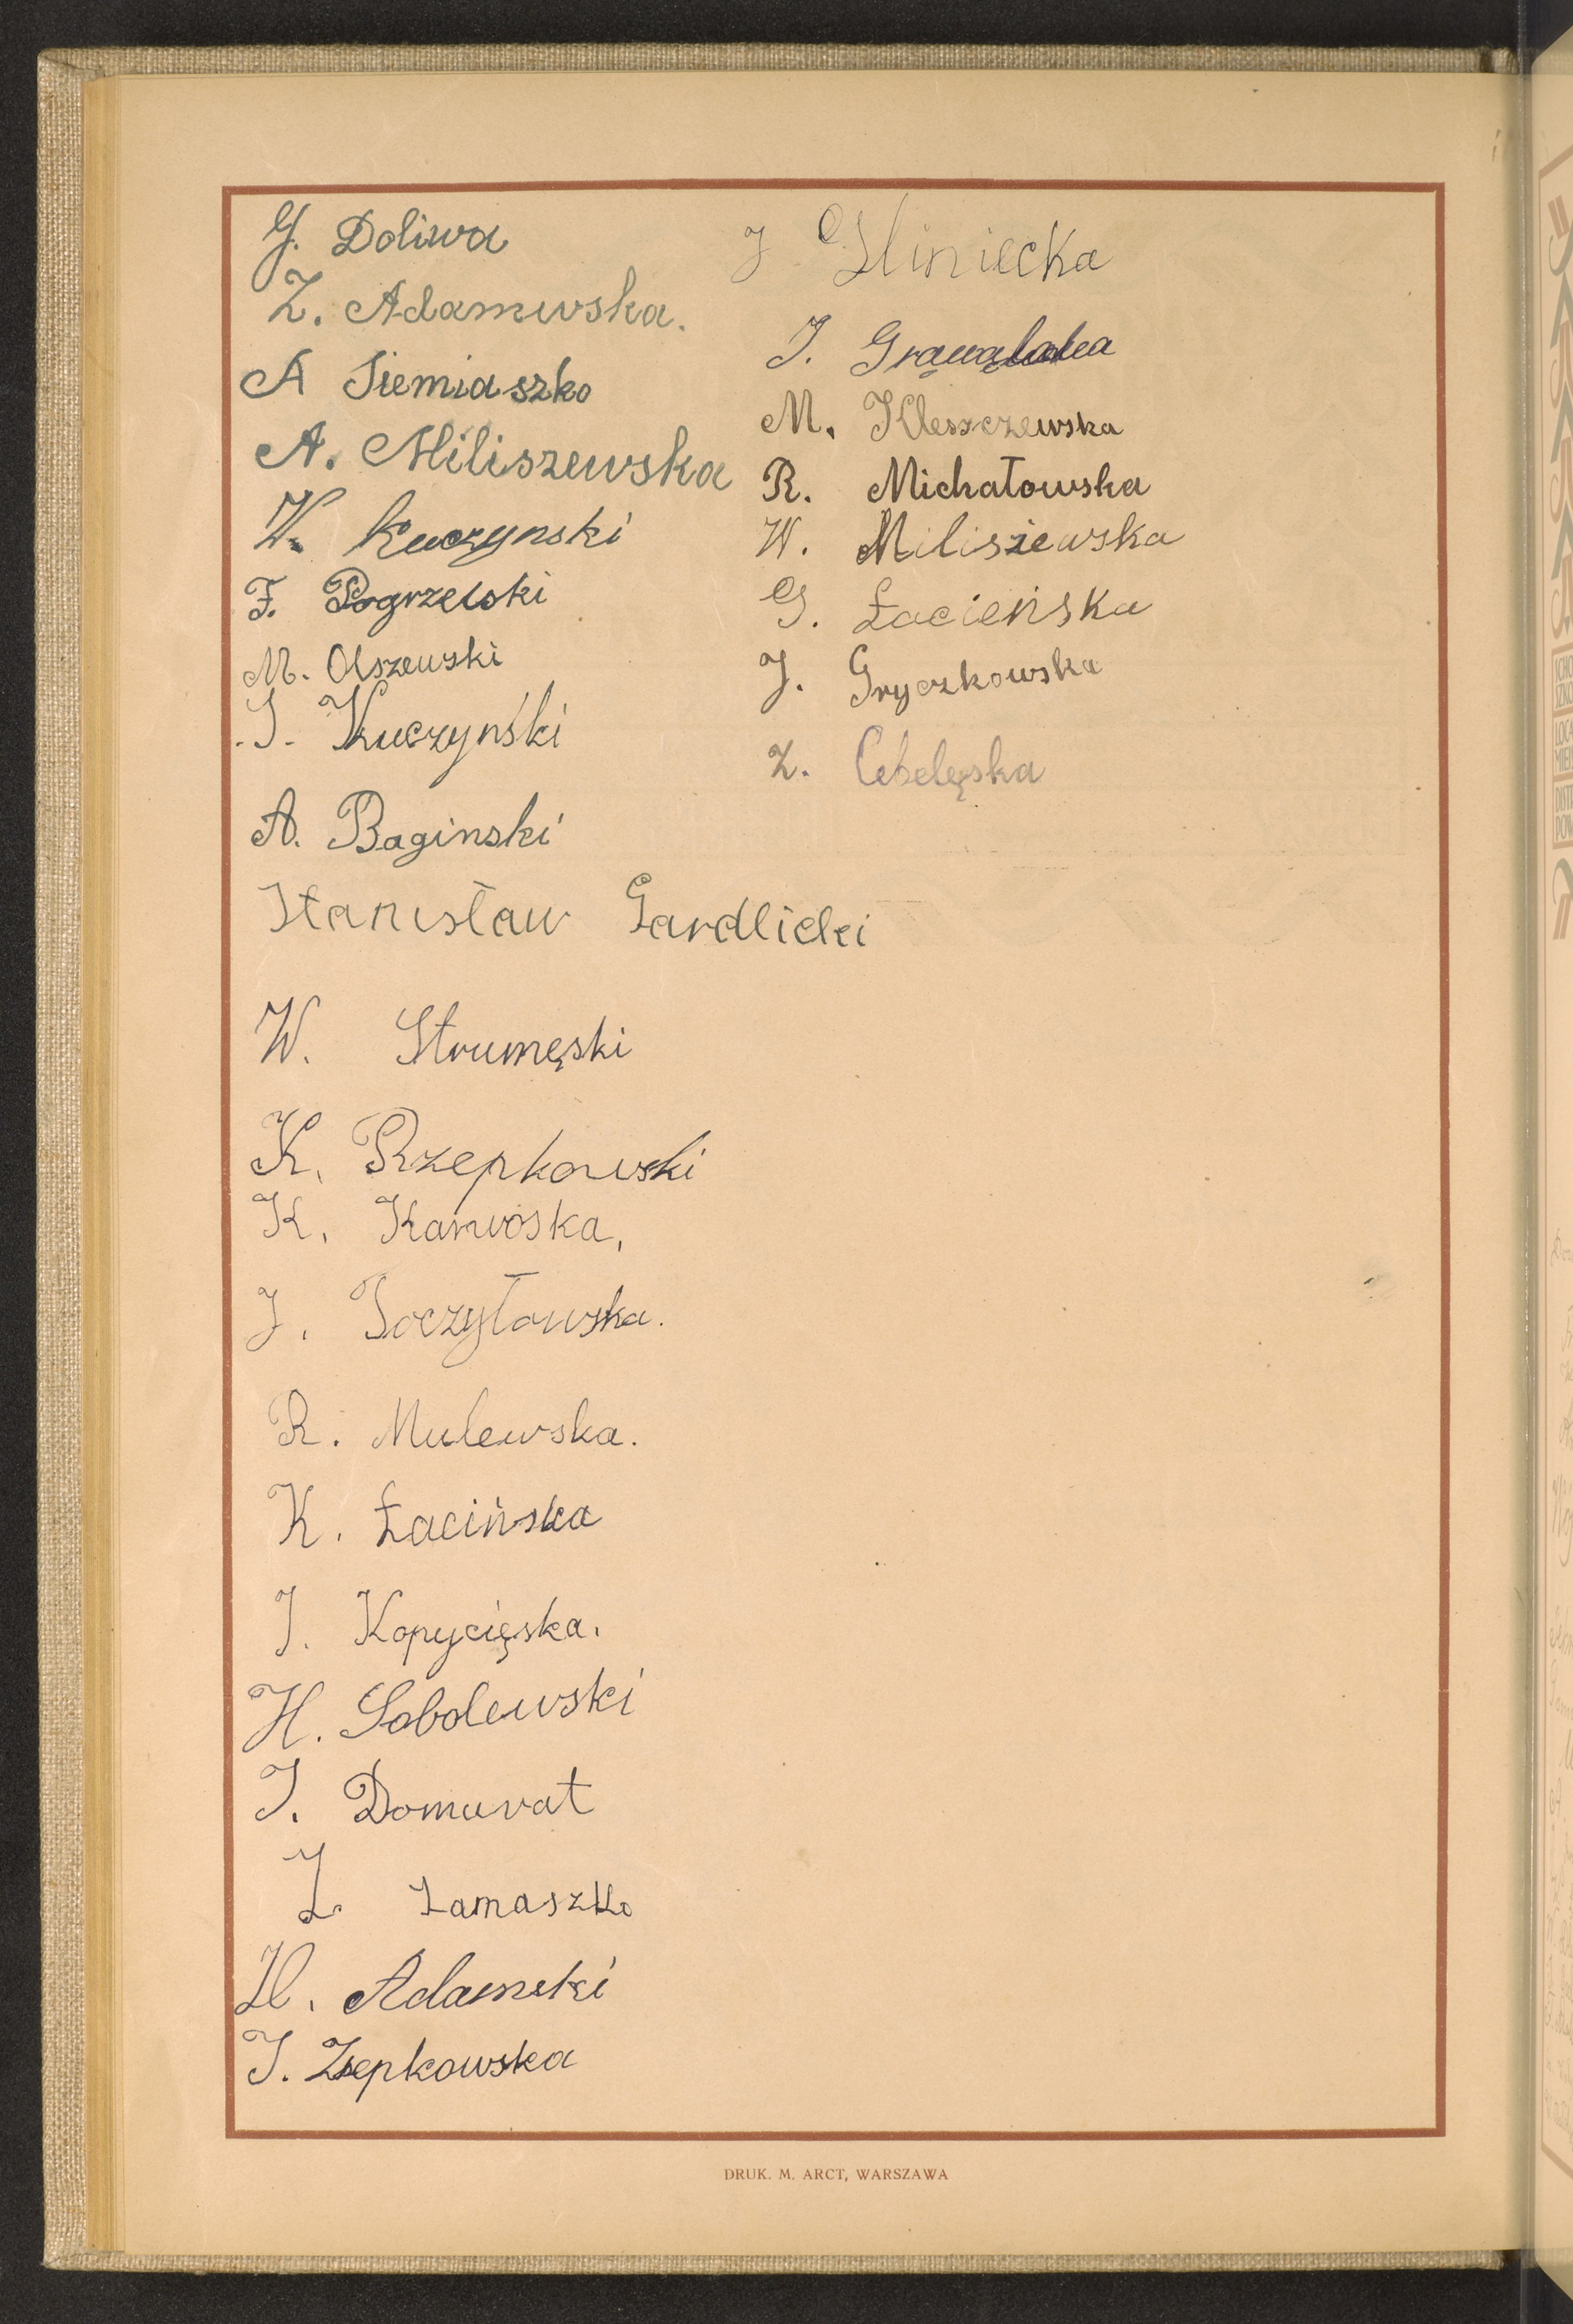 G. Doliwa
Z. Adamwska.
A Siemiaszko
A. Miliszewska
W. Kuczynski
F. Pogrzelski
M. Olszewski
S. Kuczyński
A. Baginski
Stanisław Gardlicki
W. Strumęski
K. Rzepkowski
K. Karwoska,
J. Toczyłowska.
R. Mulewska.
K. Łacińska
J. Kopycięska.
H. Sobolewski
J. Domurat
Z. Łamaszko
H. Adamski
J. Zepkowska
J Gliniecka
J.
M. Kleszczewska
R. Michałowska
W. Miliszewska
G. Łacieńska
J. Gryczkowska
Z. Cebelęska
DRUK. M. ARCT, WARSZAWA